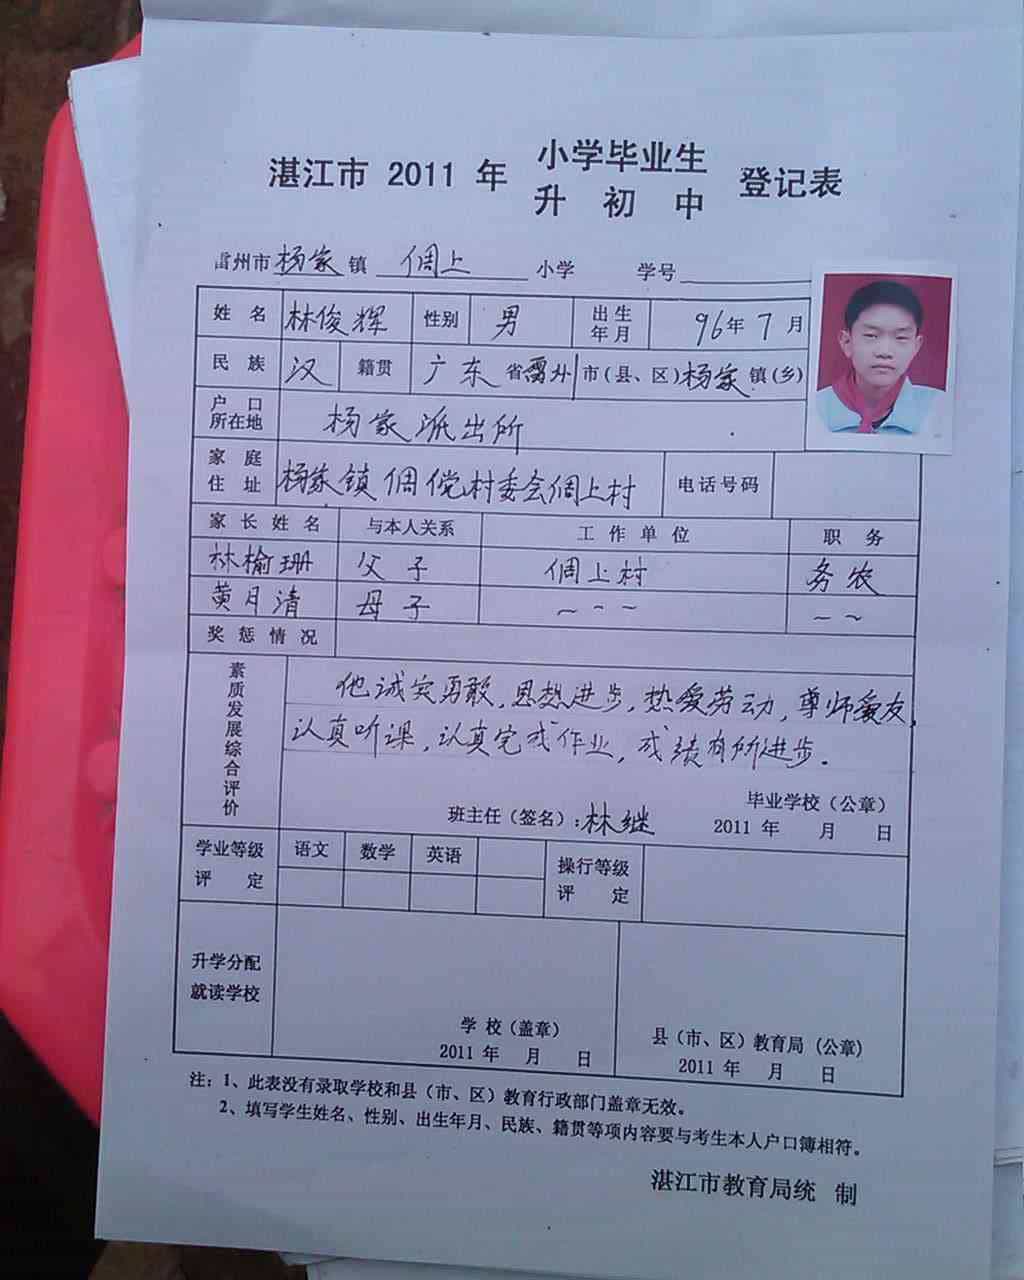 湛江市 2011 年 小学毕业生 登记表
升 初 中
雷州市杨家镇 倜上 小学 学号
姓 名 林俊辉 性别 男 出生年月 96年7月
民 族 汉 籍贯 广东省雷州市(县、区)杨家镇(乡)
户 口所在地 杨家派出所
家 庭住 址 杨家镇倜傥村委会倜上村 电话号码
家 长 姓 名 与本人关系 工 作 单 位 职 务
林榆珊 父子 倜上村 务农
黄月清 母子 ~ ~ ~ ~ ~
奖 惩 情 况
素质发展综合评价
他诚实勇敢,思想进步,热爱劳动,尊师爱友,
认真听课,认真完成作业,成绩有所进步.
毕业学校(公章)
班主任(签名):林继 2011 年 月 日
学业等级评 定 语文 数学 英语 操行等级评 定
升学分配
就读学校
学 校(盖章)
2011 年 月 日
县(市、区)教育局(公章)
2011 年 月 日
注:1、此表没有录取学校和县(市、区)教育行政部门盖章无效。
2、填写学生姓名、性别、出生年月、民族、籍贯等项内容要与考生本人户口簿相符。
湛江市教育局统 制